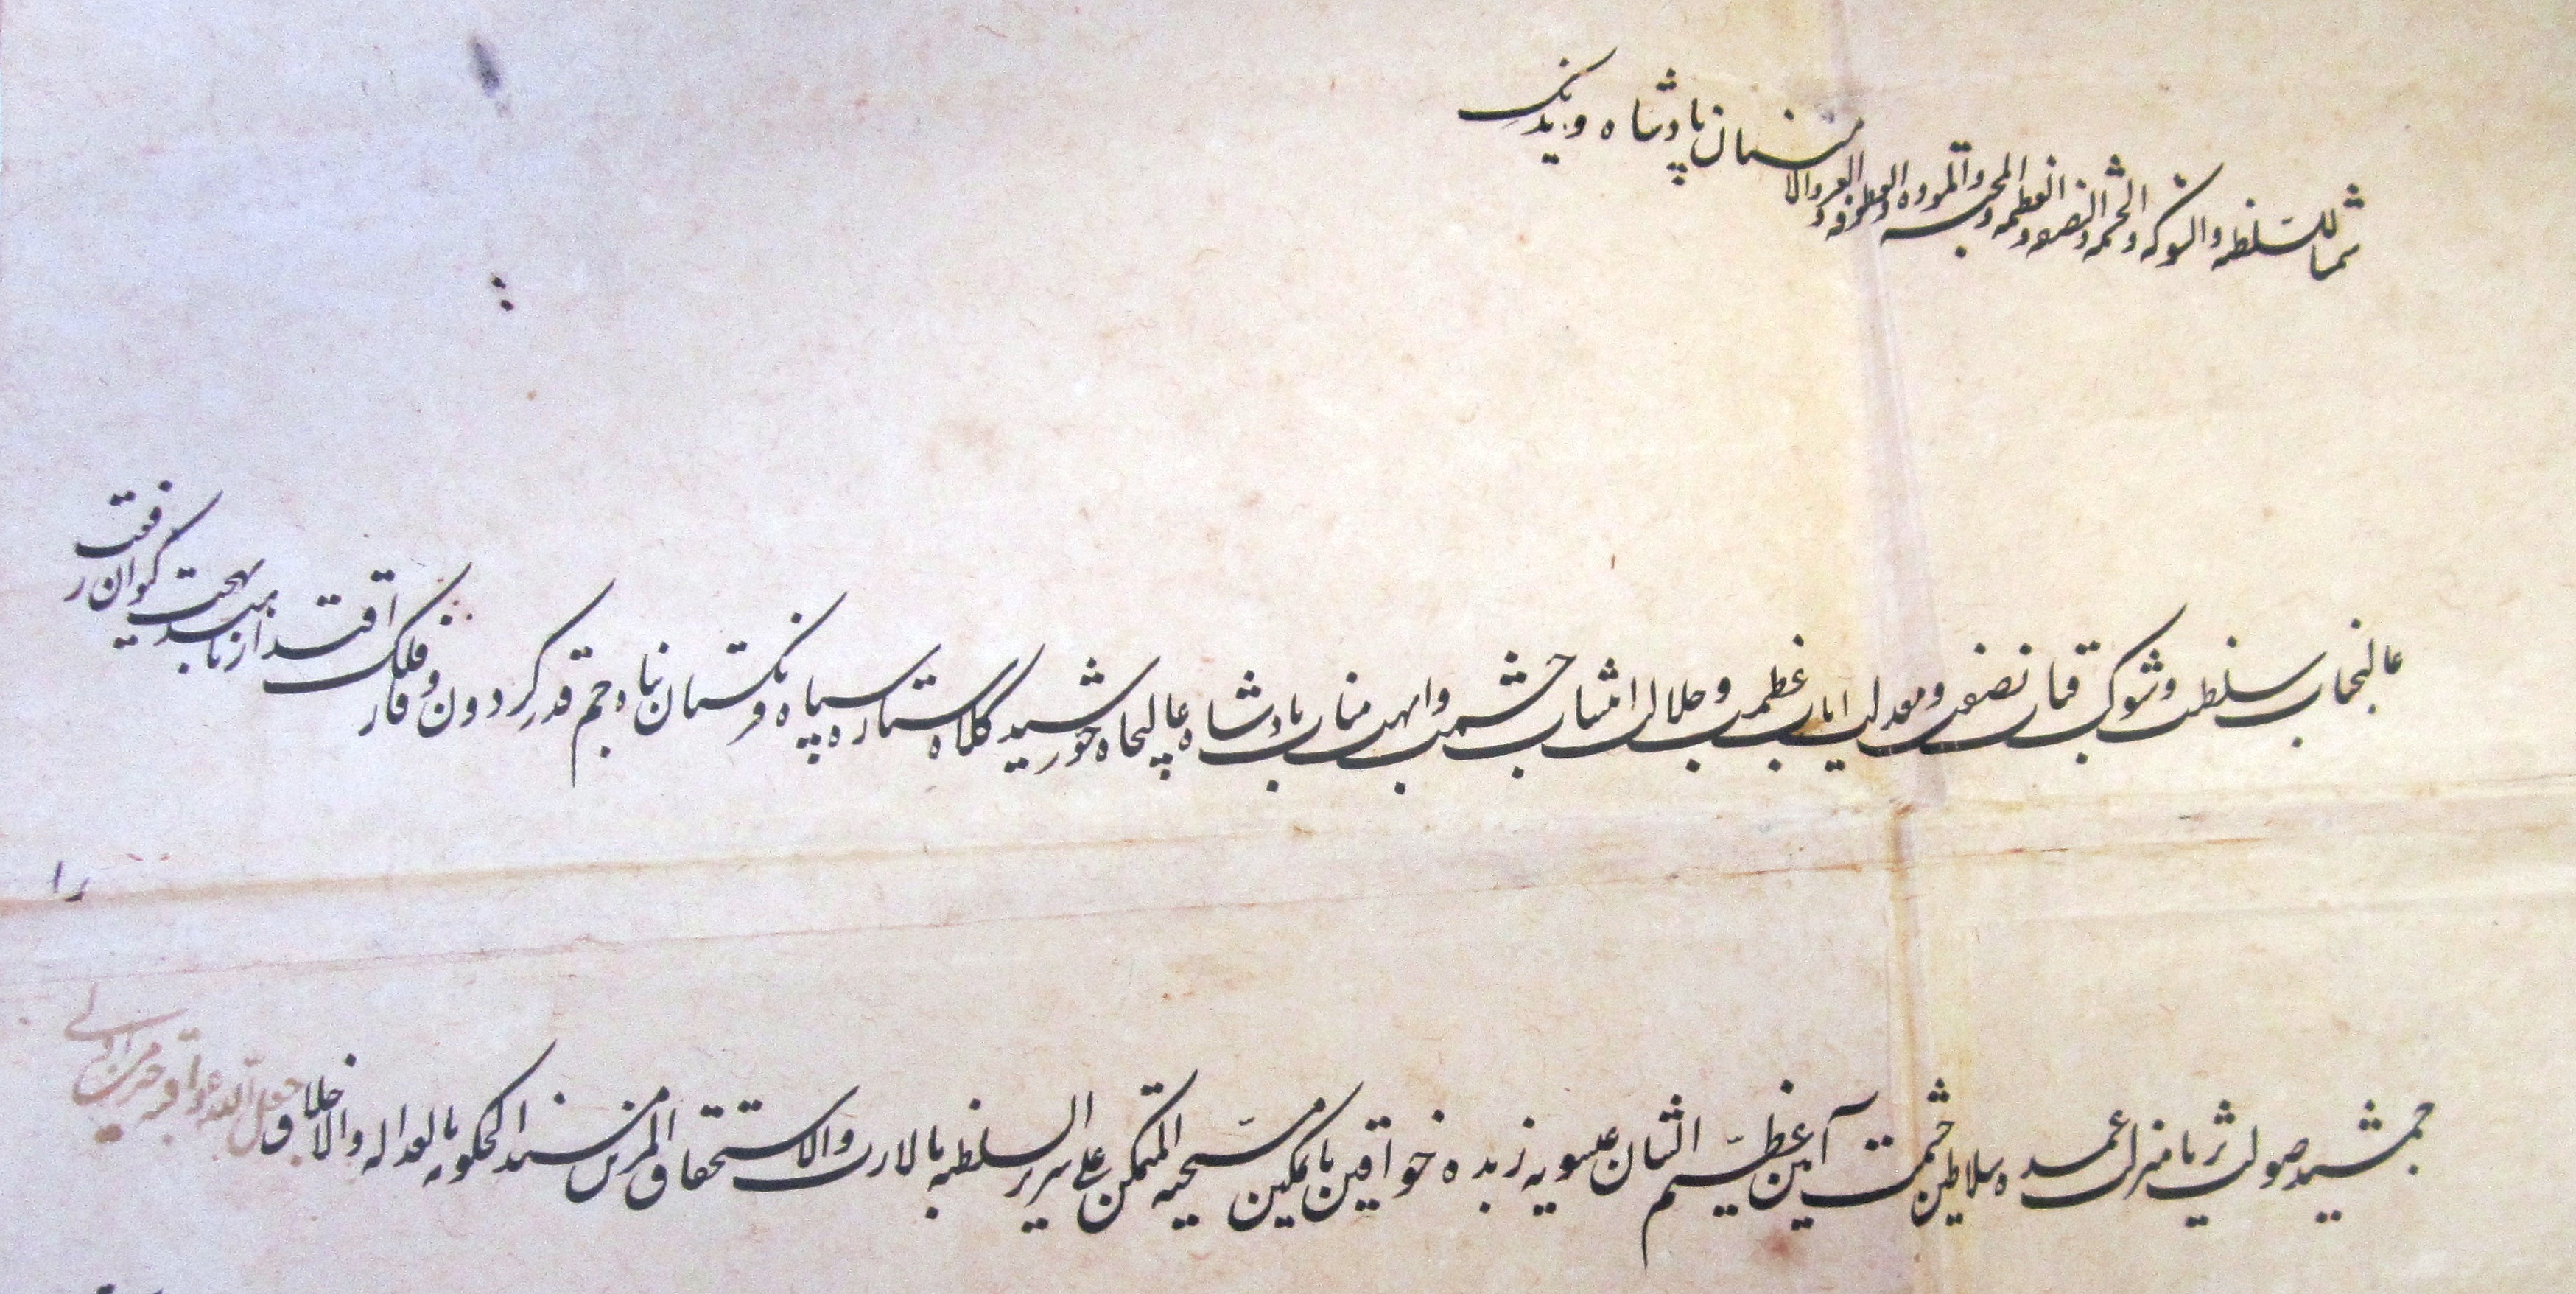 شمسا للسلطنه والشوکه والحشمه والنصفه والعظمه والمحبه والموده والعطوفه والعز والامتنان پادشاه وندیک
عالیجناب سلطنت و شوکت قباب نصفت و معدلت ایاب عظمت و جلالت انتساب حشمت و ابهت مناب پادشاه عالیجاه خورشید کلاه ستاره سپاه فرنکستان پناه جم قدر کردون وقار فلک اقتدار ناهید بهجت کیوان رفعت
را
جمشید صولت ثریا منزلت عمده سلاطین حشمت آیین عظیم الشان عیسویه زبده خواقین با تمکین مسیحیه المتمکن علی سریر السلطنه بالارث والاستحقاق المزین مسند الحکومه بالعداله والاخلاق جعل الله عواقبه خیر من اولی